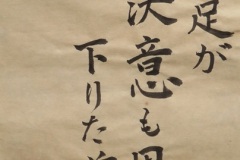 足が
決意も
下りた